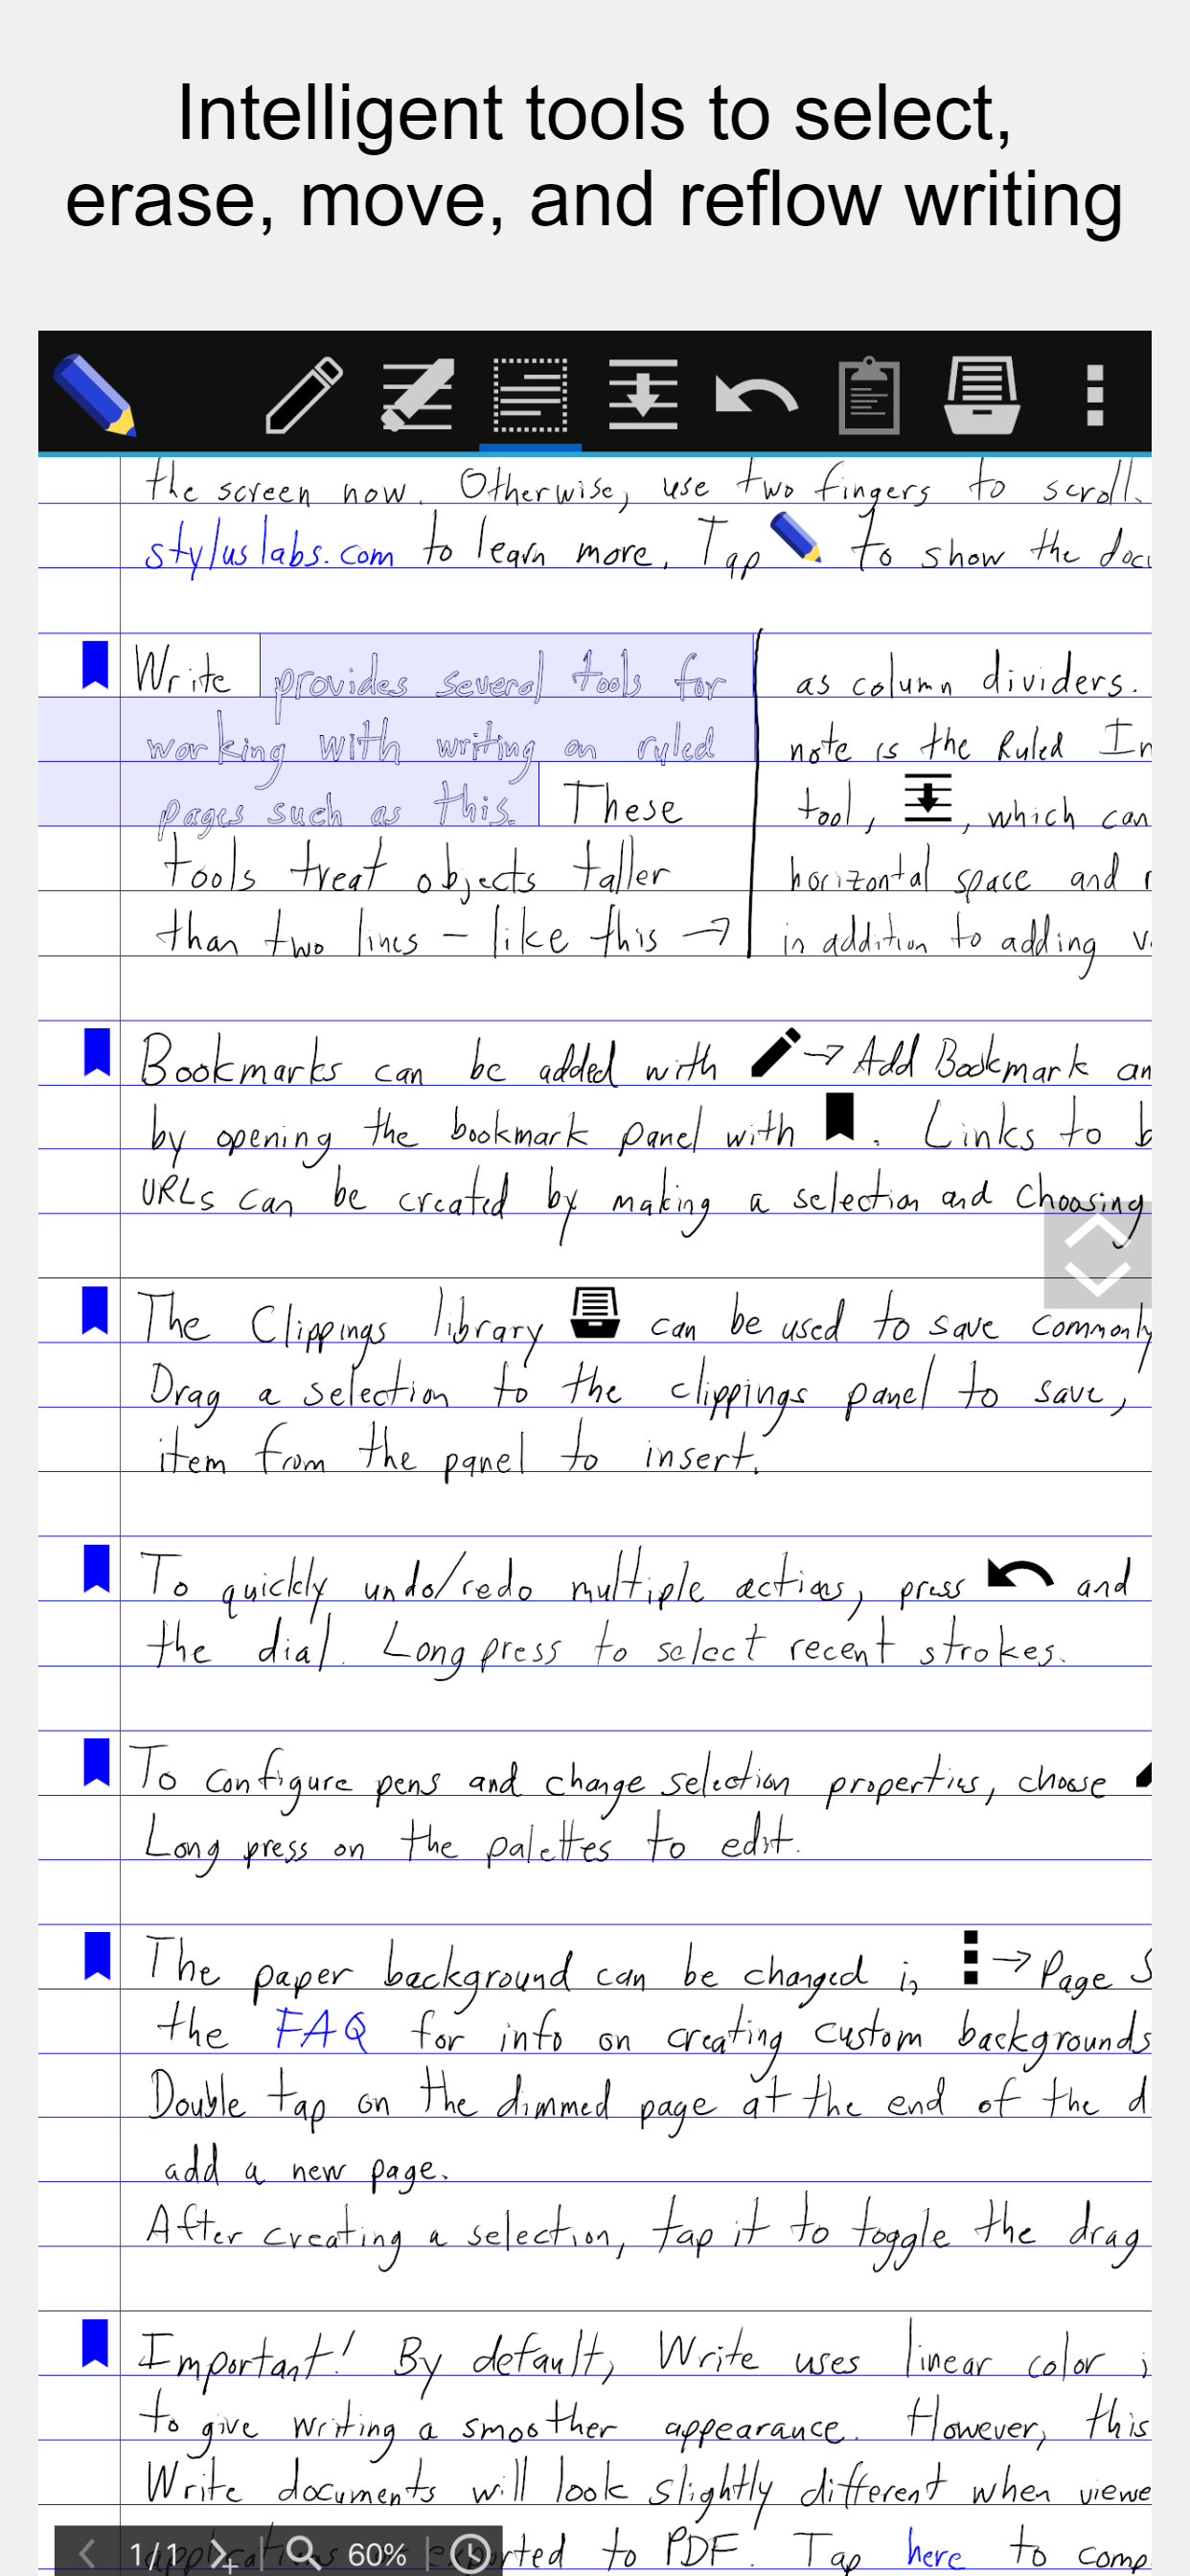 Intelligent tools to select,
erase, move, and reflow writing
the screen now. Otherwise, use two fingers to scroll.
styluslabs.com to learn more. Tap to show the docu
Write provides several tools for
working with writing on ruled
pages such as this. These
tools treat objects taller
than two lines – like this →
as column dividers.
note is the Ruled In
tool, , which can
horizontal space and r
in addition to adding v
Bookmarks can be added with → Add Bookmark an
by opening the bookmark panel with . Links to b
URLs can be created by making a selection and choosing
The Clippings library can be used to save commonly
Drag a selection to the clippings panel to save,
item from the panel to insert.
To quickly undo/redo multiple actions, press and
the dial. Long press to select recent strokes.
To configure pens and change selection properties, choose
Long press on the palettes to edit.
The paper background can be changed in → Page S
the FAQ for info on creating custom backgrounds
Double tap on the dimmed page at the end of the d
add a new page.
After creating a selection, tap it to toggle the drag
Important! By default, Write uses linear color i
to give writing a smoother appearance. However, this
Write documents will look slightly different when viewe
exported to PDF. Tap here to comp
1/1 60%